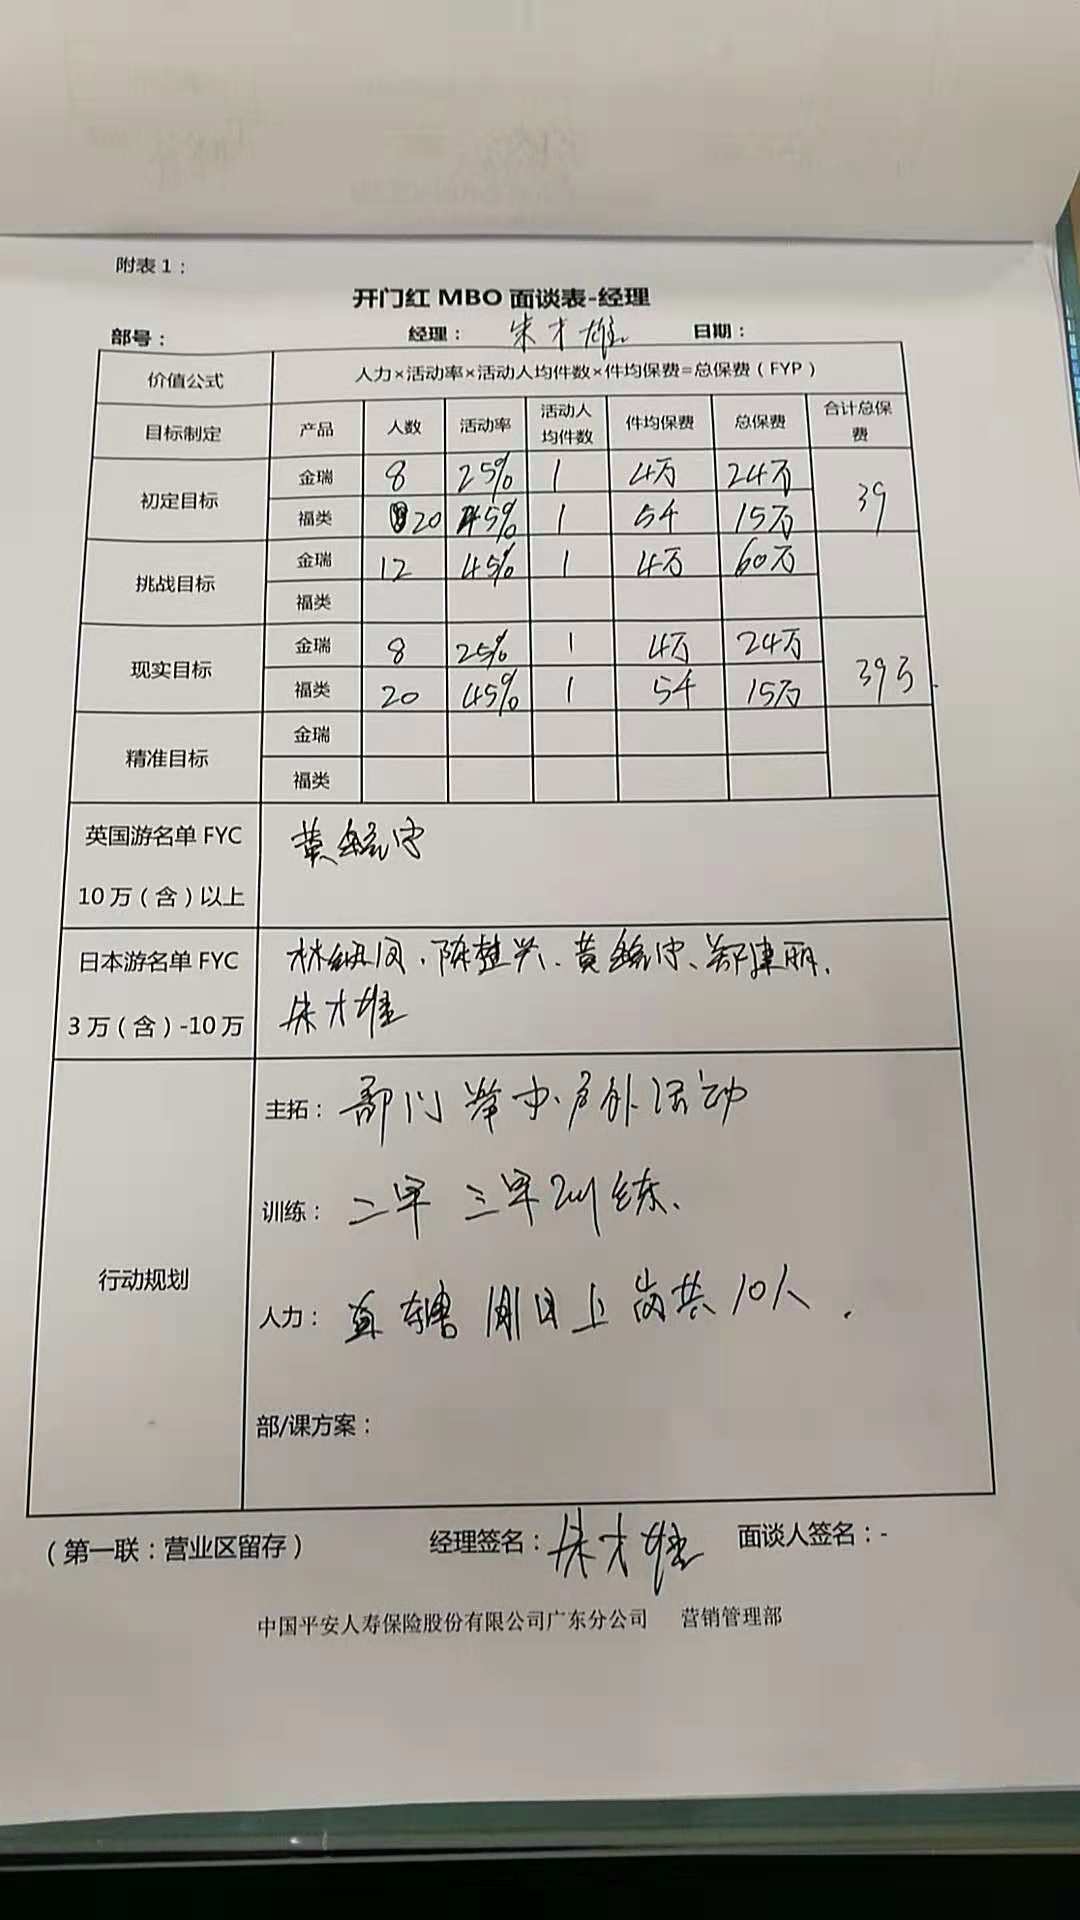 附表1：
开门红 MBO 面谈表-经理
部号： 经理： 朱才雄 日期：
价值公式 人力×活动率×活动人均件数×件均保费=总保费（FYP）
目标制定 产品 人数 活动率 活动人均件数 件均保费 总保费 合计总保费
初定目标 金瑞 8 25% 1 4万 24万 39
福类 20 45% 1 54 15万
挑战目标 金瑞 12 45% 1 4万 60万
福类
现实目标 金瑞 8 25% 1 4万 24万 39万
福类 20 45% 1 54 15万
精准目标 金瑞
福类
英国游名单 FYC
10万（含）以上
黄守
日本游名单 FYC
3万（含）-10万
林、陈楚兴、黄守、郑建丽、
朱才雄
行动规划
主拓： 部门举办户外活动
训练： 二早 三早训练、
人力： 直辖 上岗共10人.
部/课方案：
（第一联：营业区留存） 经理签名：朱才雄 面谈人签名：-
中国平安人寿保险股份有限公司广东分公司 营销管理部